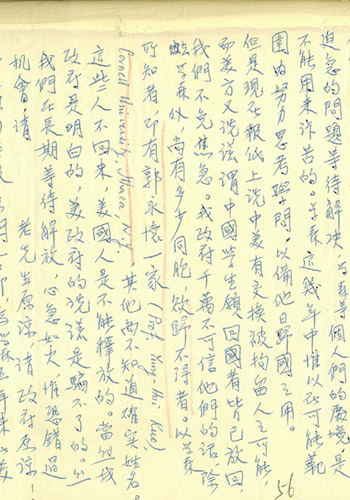 迫急的問題等待解決,学森等個人們的處境,是
不能用来訴苦的。学森這幾年中惟以在可能範
圍内努力思考學問,以備他日歸國之用。
但是現在报紙上说中美有交換被拘留人之可能,
而美方又说谎謂中國学生願回國者皆已放回,
我們不免焦急。我政府千萬不可信他們的話,除
去学森外,尚有多少同胞,欲歸不得者。以学森
所知者,即有郭永懷一家 (Prof. Yung-huai Kuo,
Cornell University, Ithaca, N.Y.),其他尚不知道確实姓名。
這些人不回来,美國人是不能釋放的。當然我
政府是明白的,美政府的说谎是騙不了的。然
我們在長期等待解放,心急如火,惟恐錯過
機會,請 老先生原諒,請政府原諒!
56